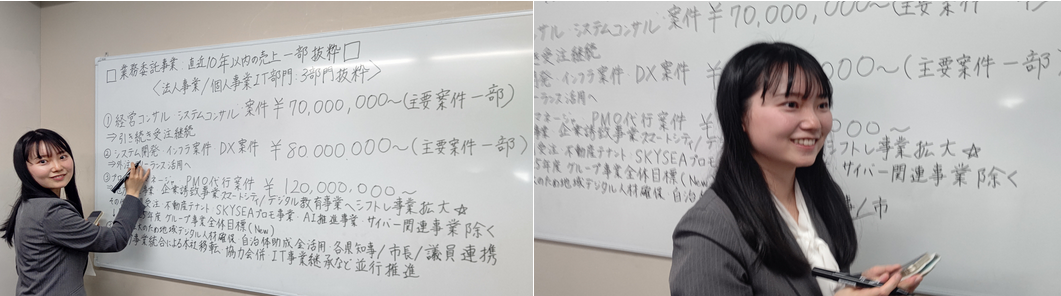 □ 業務委託事業 直近10年以内の売上一部抜粋 □
〈法人事業/個人事業IT部門:3部門抜粋〉
① 経営コンサル システムコンサル 案件 ¥70,000,000〜(主要案件一部)
⇒引き続き受注継続
② システム開発 インフラ案件 DX案件 ¥80,000,000〜(主要案件一部)
ーランス活用へ
③ プロ マネージャ PMO代行案件 ¥120,000,000〜
事業 企業誘致事業 スマートシティ/デジタル教育事業へシフトし事業拡大☆
その 受注 不動産テナント SKYSEAプロモ事業・AI推進事業 サイバー関連事業除く
5年度 グループ事業全体目標(New)
のため地域デジタル人材確保 自治体助成金活用 各県知事/市長/議員連携
事業統合による本社移転 協力会併 IT事業継承など並行推進
サル システムコンサル 案件 ¥70,000,000〜(主要案
き受注継続
発 インフラ案件 DX案件 00〜(主要案件一部
ーランス活用へ
マネージャ PMO代行案件 ¥ 000〜
事業 企業誘致事業 スマートシティ/ シフトし事業拡大☆
受注 不動産テナント SKYSEAプロモ サイバー関連事業除く
5年度 グループ事業全体目標(New
のため地域デジタル人材確保 自治 /市